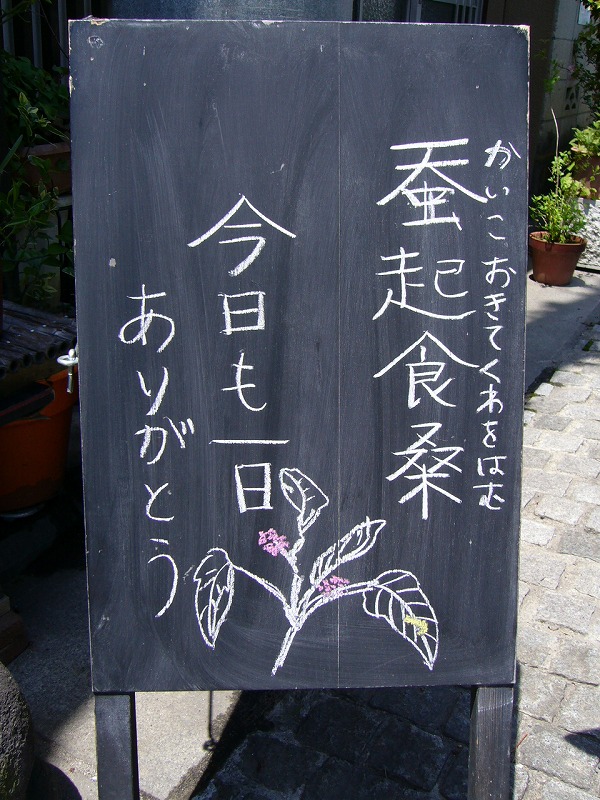 かいこおきてくわをはむ
蚕起食桑
今日も一日
ありがとう